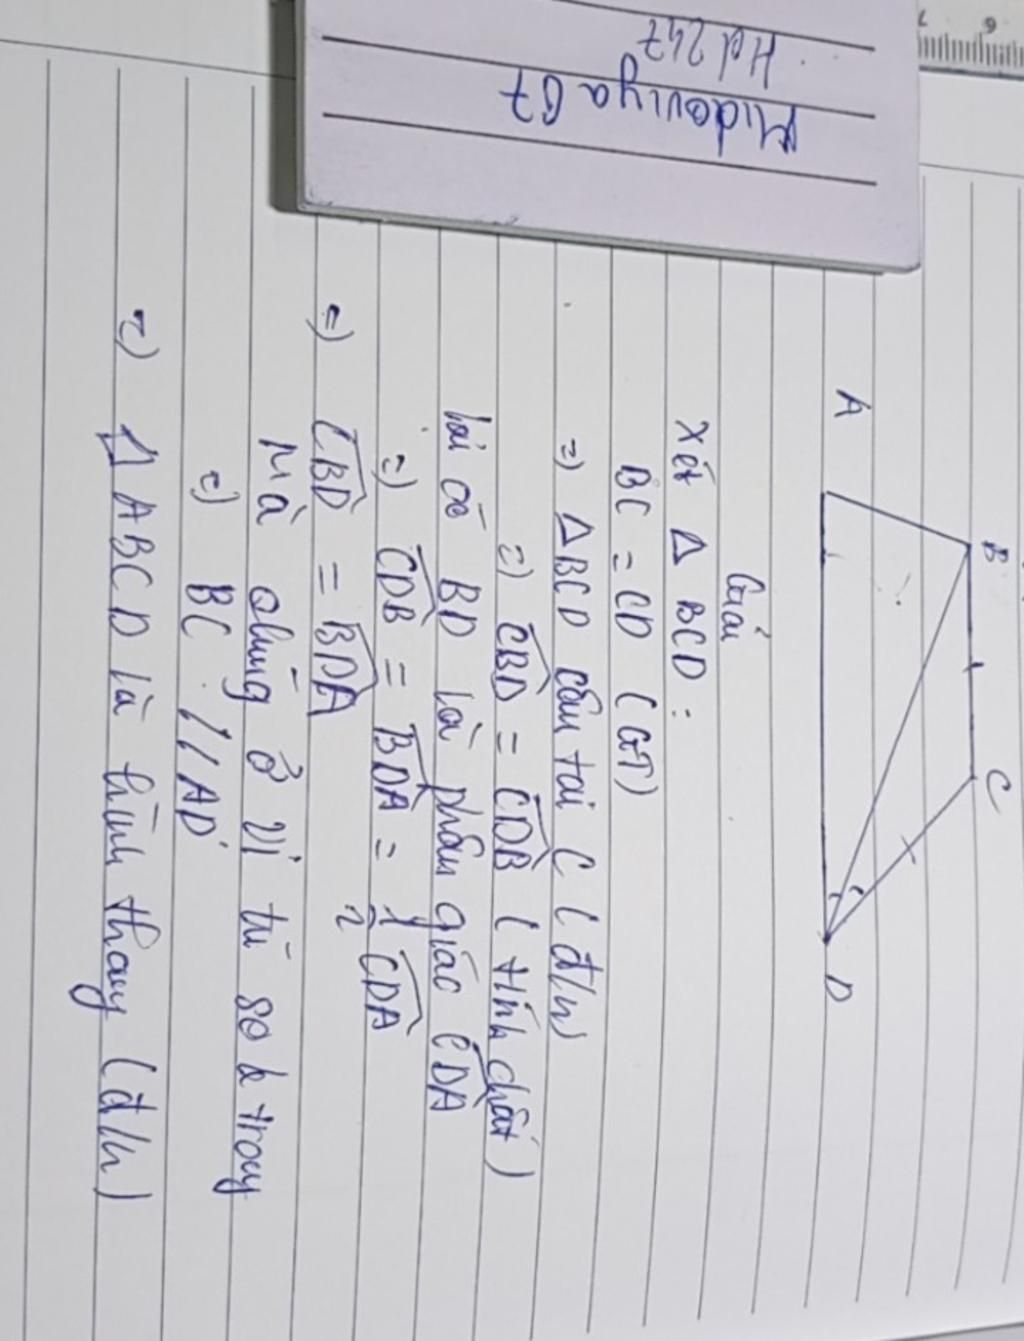 Midoriya 67
Hd 247
A
B
C
D
Giải
Xét Δ BCD :
BC = CD (GT)
=) Δ BCD cân tại C (đ/n)
=) CBD = CDB (tính chất)
lại có BD là phân giác CDA
=) CDB = BDA = 1/2 CDA
=) CBD = BDA
Mà chúng ở vị trí so le trong
=) BC // AD
=) Δ ABCD là hình thang (đ/n)